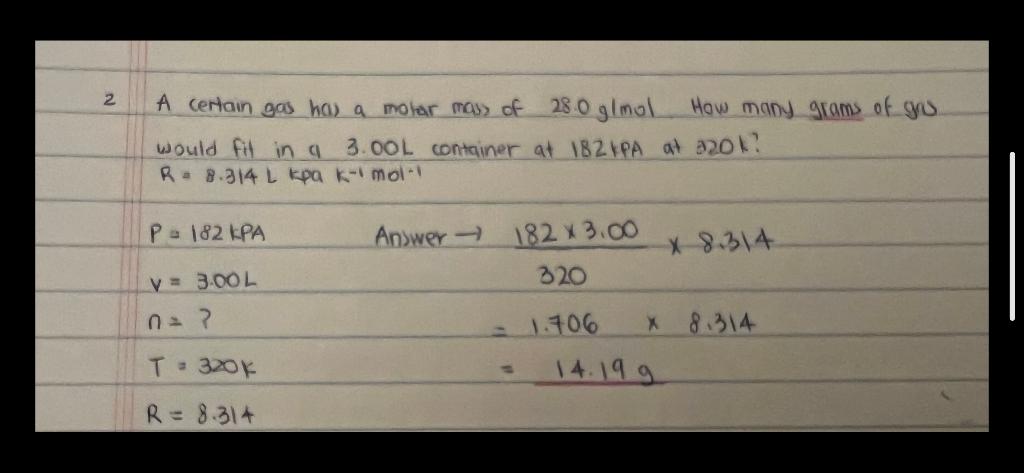 2 A certain gas has a molar mass of 28.0 g/mol How many grams of gas
would fit in a 3.00L container at 182 kPA at 320k?
R = 8.314 L kpa k-1 mol-1
P = 182 kPA Answer → 182 x 3.00 x 8.314
320
V = 3.00L
n = ? = 1.706 x 8.314
T = 320k = 14.19 g
R = 8.314